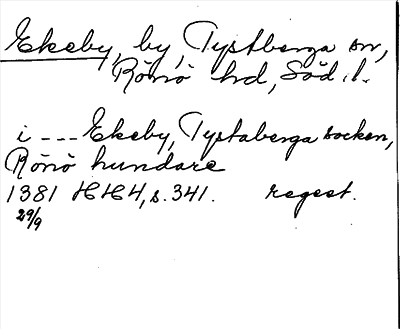 Ekeby, by, Tystberga sn,
Rönö hd, Söd. l.
i --- Ekeby, Tystaberga socken,
Rönö hundare
1381 HH4, s. 341. regest.
29/9